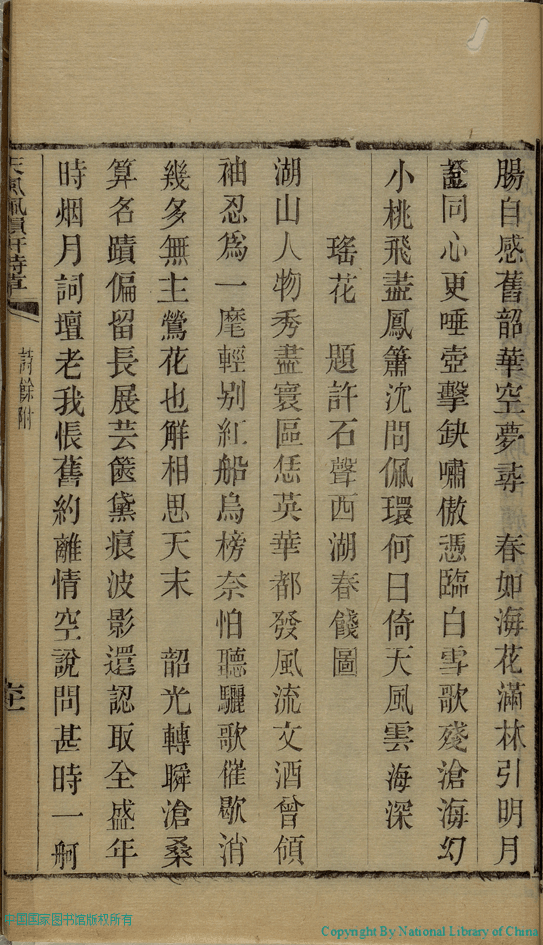 腸自感舊韶華空夢尋　春如海花滿林引明月
同心更唾壺擊缺嘯傲憑臨白雪歌殘滄海幻
小桃飛盡鳳簫沈問佩環何日倚天風雲海深
瑤花　題許石聲西湖春餞圖
湖山人物秀盡寰區恁英華都發風流文酒曾傾
袖忍為一麾輕別紅船烏榜奈怕聽驪歌催歇消
幾多無主鶯花也解相思天末　韶光轉瞬滄桑
算名蹟偏留長展芸篋黛痕波影還認取全盛年
時烟月詞壇老我悵舊約離情空說問甚時一舸
詩餘附
中国国家图书馆版权所有
Copyright By National Library of China